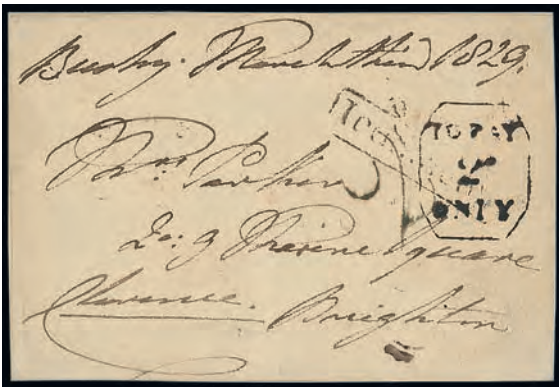 Bushy. March third 1829.
Ted
TO PAY
1D
ONLY
Mrs. Parker
No: 9 Marine Square
Clarence. Brighton